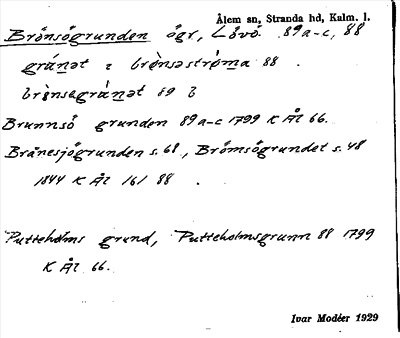 Ålem sn, Stranda hd, Kalm. l.
Brånsögrunden ögr, Lövö. 89a-c, 88
gránət 2 brònsəstrǫ̀ma 88 .
brònsəgránət 89 b
Brunnsö grunden 89a-c 1799 K Ål 66.
Brånesjögrunden s. 68, Brömsögrundet s. 48
1844 K Ål 161 88 .
Putteholms grund, Putteholmsgrunn 88 1799
K Ål 66.
Ivar Modéer 1929